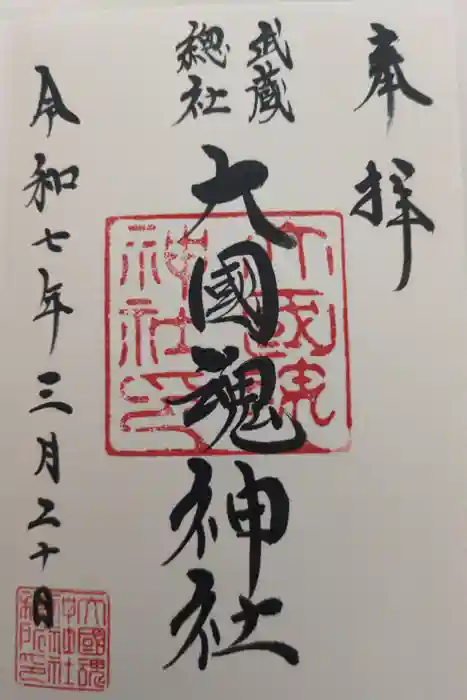 奉拝
武蔵
總社
大國魂神社
大國魂
神社印
令和七年三月二十日
大國魂
神社